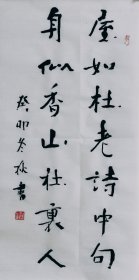 屋如杜老詩中句
身似香山社裏人
癸卯冬秋書